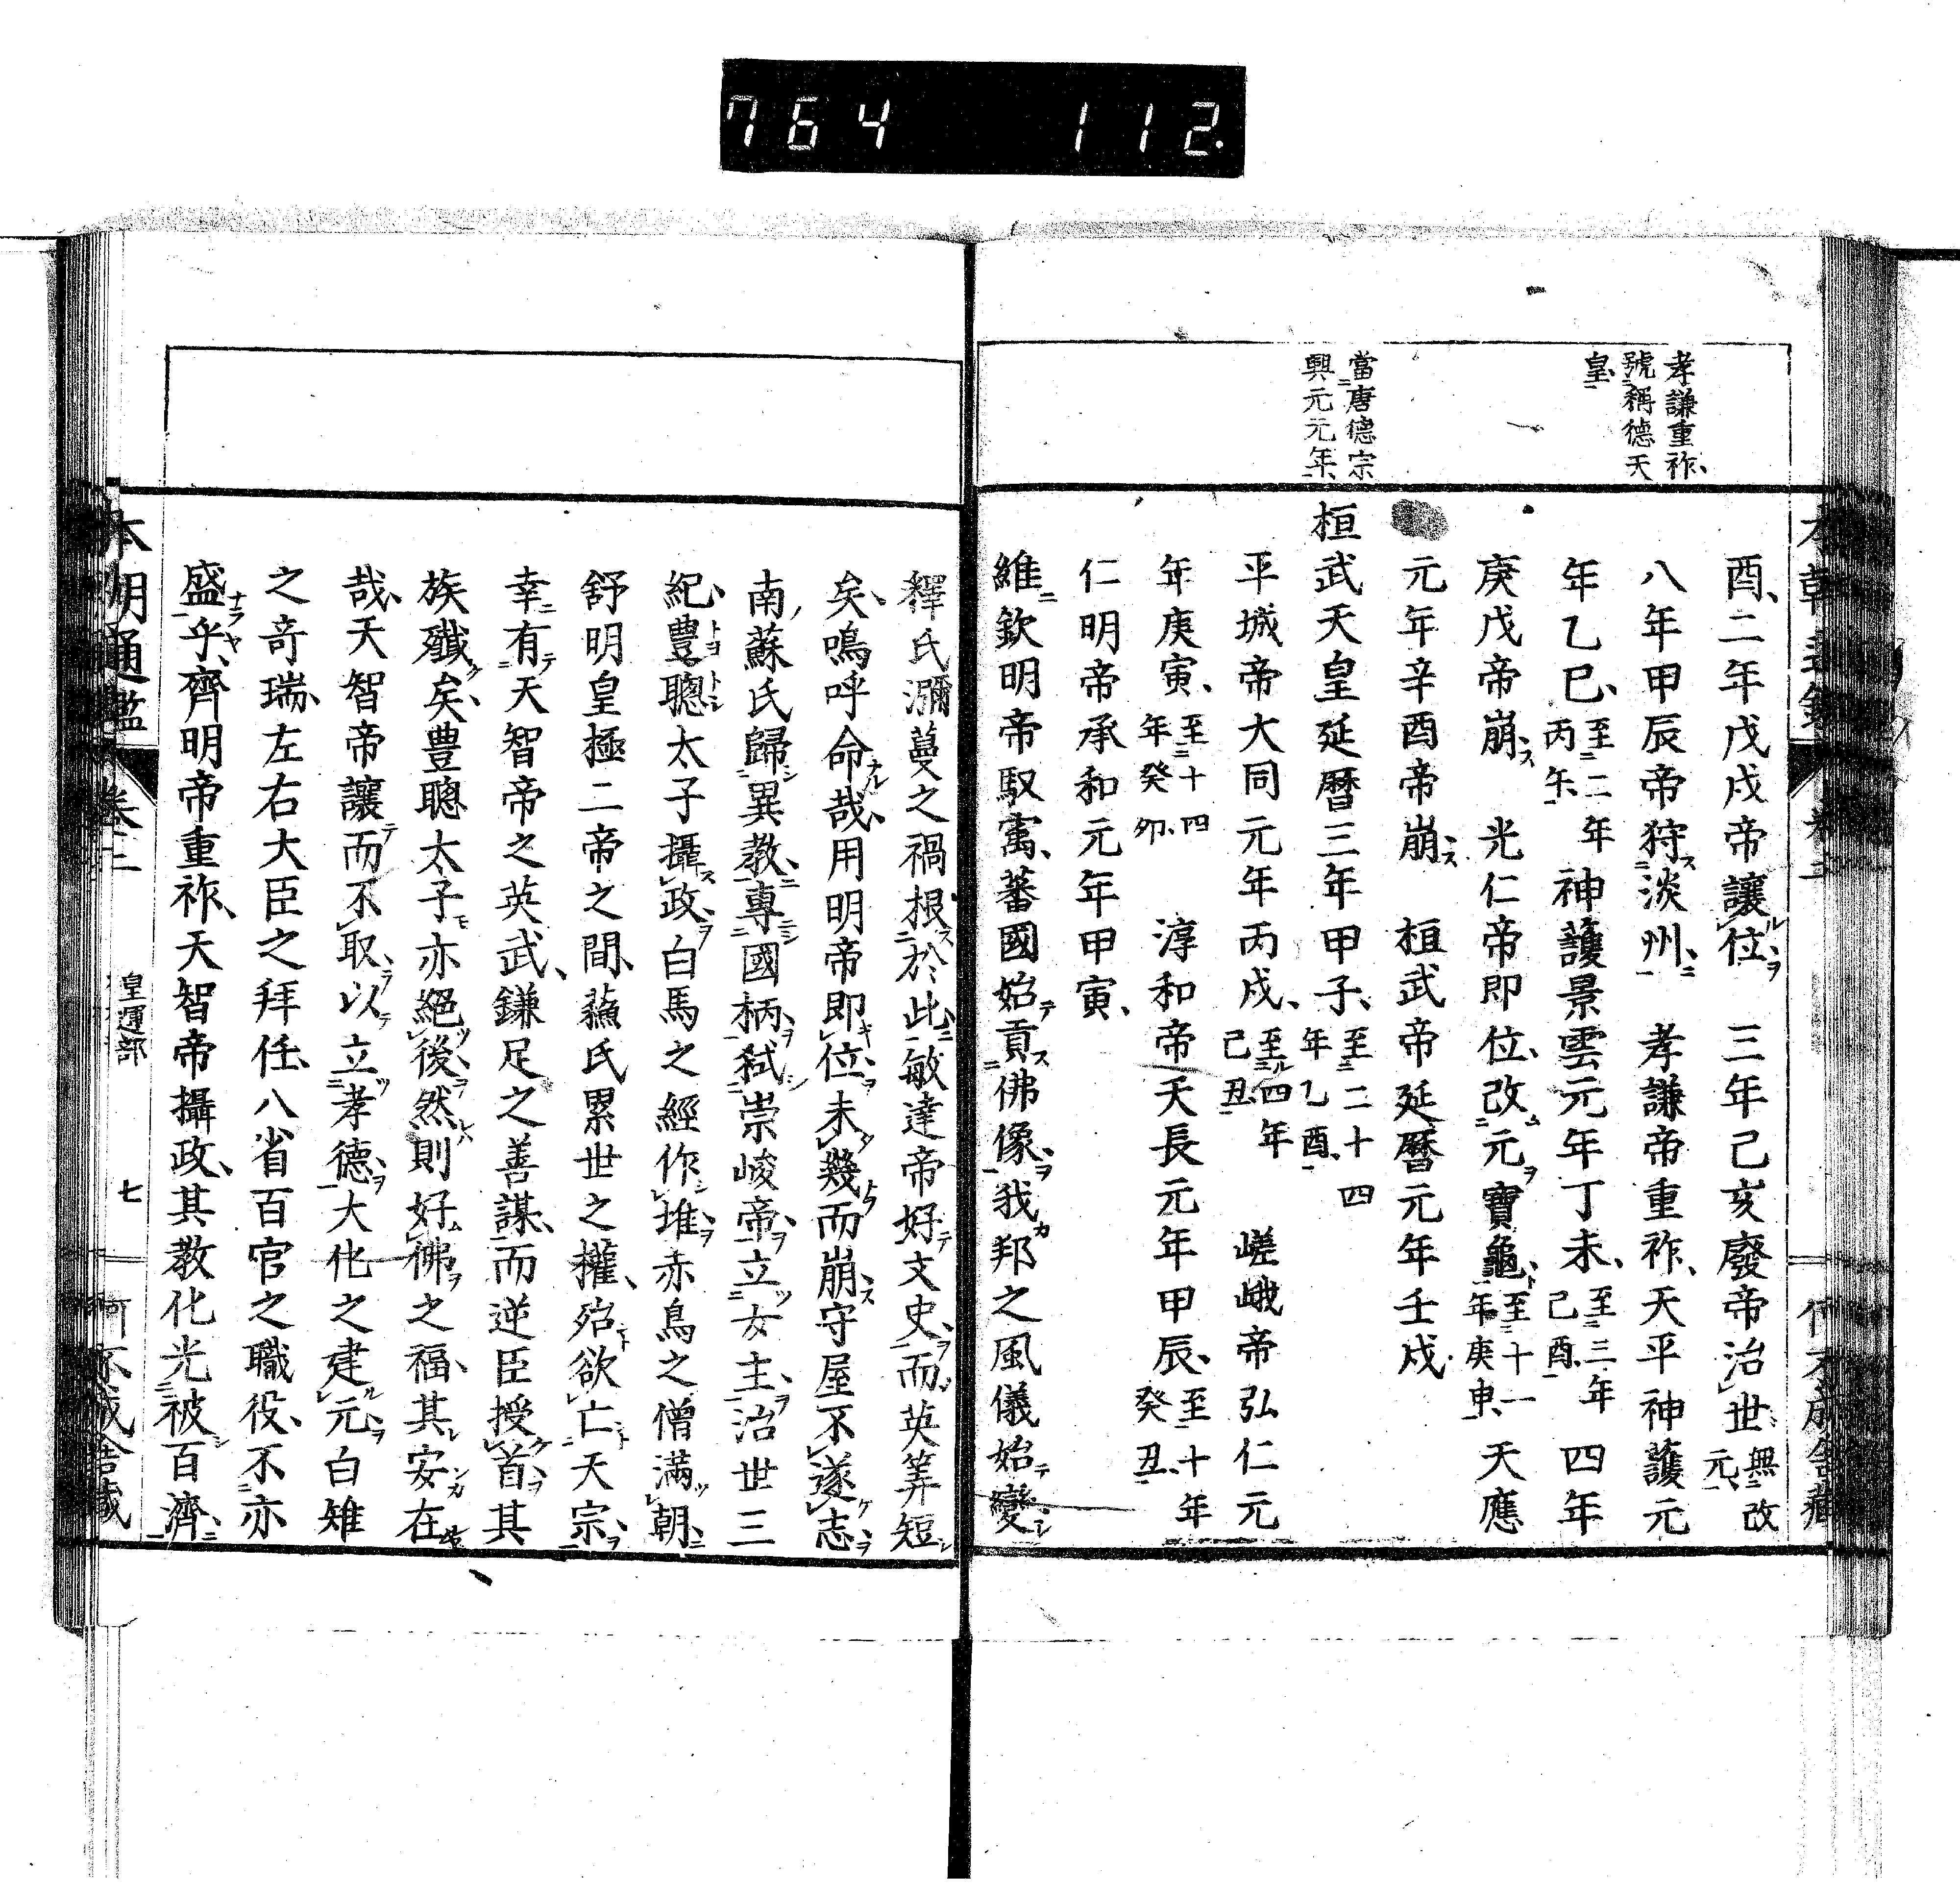 764 112.
孝謙重祚、
號稱德天
皇、
當唐德宗
興元元年、
酉、二年戊戌帝讓位、三年己亥廢帝治世、無改元、
八年甲辰帝狩淡州、孝謙帝重祚、天平神護元
年乙巳、至二年丙午、神護景雲元年丁未、至三年己酉、四年
庚戌帝崩、光仁帝即位、改元寶龜、至十一年庚申、天應
元年辛酉帝崩、桓武帝延暦元年壬戌、
桓武天皇延暦三年甲子、至二十四年乙酉、
平城帝大同元年丙戌、至四年己丑、嵯峨帝弘仁元
年庚寅、至十四年癸卯、淳和帝天長元年甲辰、至十年癸丑、
仁明帝承和元年甲寅、
維欽明帝馭㝢、蕃國始貢佛像、我邦之風儀始變
釋氏瀰蔓之禍根於此、敏達帝好文史、而英筭短
矣、嗚呼命哉、用明帝即位、未幾而崩、守屋不遂志、
南蘇氏歸異教、專國柄、弑崇峻帝、立女主、治世三
紀、豊聰太子攝政、白馬之經作堆、赤鳥之僧滿朝、
舒明皇極二帝之間、蘓氏累世之權、殆欲亡天宗、
幸有天智帝之英武、鎌足之善謀、而逆臣授首、其
族殲矣、豊聰太子亦絕後、然則好佛之福、其安在
哉、天智帝讓而不取、以立孝德、大化之建元、白雉
之奇瑞、左右大臣之拜任、八省百官之職役、不亦
盛乎、齊明帝重祚、天智帝攝政、其教化光被百濟、
本朝通鑑 卷二 皇運部 七